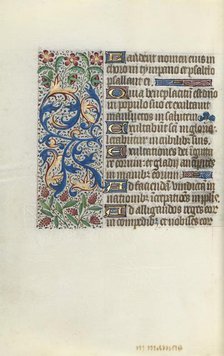 Laudent nomen eius in
choro in tympano et psalterio
psallant ei
Quia beneplacitū est dn̄o
in populo suo et exaltauit
mansuetos in salutem
Exultabūt sc̄i in gloria
in cubilibus suis
Exultationes dei in guttu
re eorum et gladij ancipi
in manibꝰ eorum
Ad faciendā vindictā in
nationibꝰ increpatiōes in pplīs
Ad alligandos reges eorū
in compedibꝰ et nobiles eor